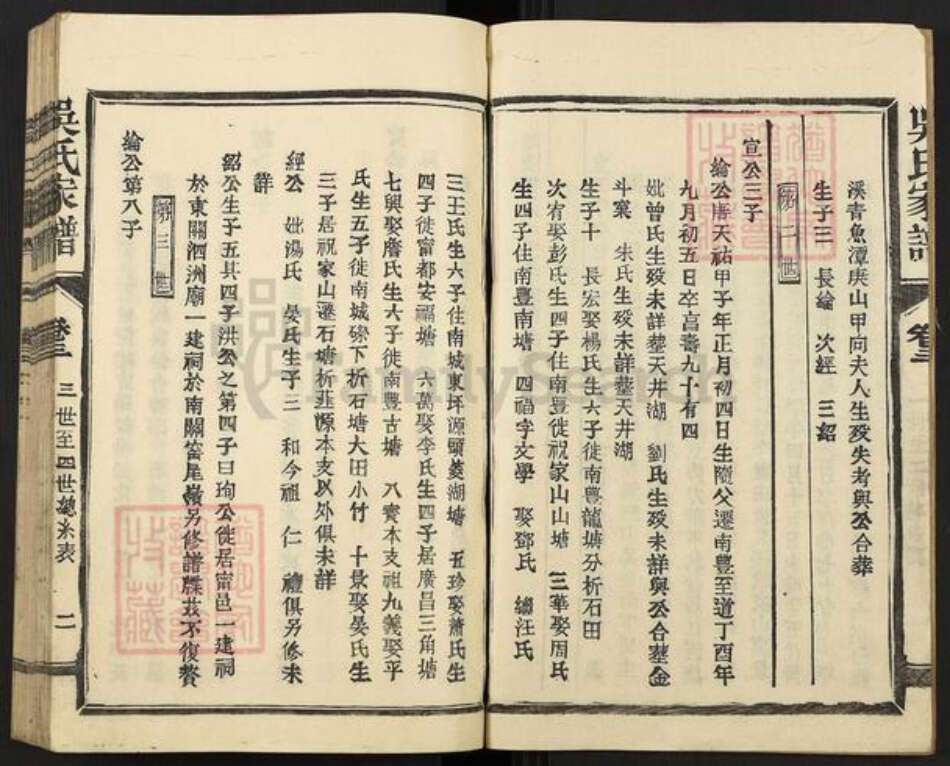 溪青魚潭庚山甲向夫人生歿失考與公合葬
生子三　長綸　次經　三紹
第二世
宣公三子
綸公唐天祐甲子年正月初四日生隨父遷南豐至道丁酉年
九月初五日卒亯壽九十有四
妣曾氏生歿未詳塟天井湖　劉氏生歿未詳與公合塟金
斗窠　朱氏生歿未詳塟天井湖
生子十　長宏娶楊氏生六子徙南豐龍塘分析石田
次宥娶彭氏生四子住南豐徙祝家山山塘　三華娶周氏
生四子住南豐南塘　四福字文學　娶鄧氏　繼汪氏
三王氏生六子住南城東坪源頭菱湖塘　五珍娶蕭氏生
四子徙甯都安福塘　六萬娶李氏生四子居廣昌三角塘
七興娶詹氏生六子徙南豐古塘　八實本支祖九義娶平
氏生五子徙南城磜下析石塘大田小竹　十景娶晏氏生
三子居祝家山遷石塘析韮源本支以外俱未詳
經公　妣湯氏　吳氏生子三　和今祖　仁　禮俱另修未
詳
紹公生子五其四子洪公之第四子曰珣公徙居甯邑一建祠
於東關泗洲廟一建祠於南關窑尾嶺另修譜牒茲不復贅
第三世
綸公第八子
吳氏家譜
卷三
三世至四世總系表
二
吳氏家譜
卷三
FamilySearch